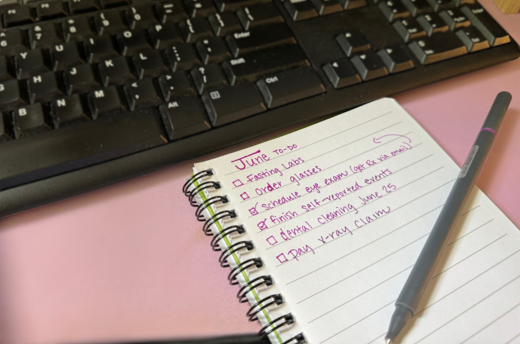 Enter
Shift
Alt
Ctrl
Y U I O P
G H J K L
B N M
June TO-DO
Fasting Labs
Order glasses
Schedule eye exam (get Rx via email)
Finish self-reported events
dental cleaning June 25
pay x-ray claim